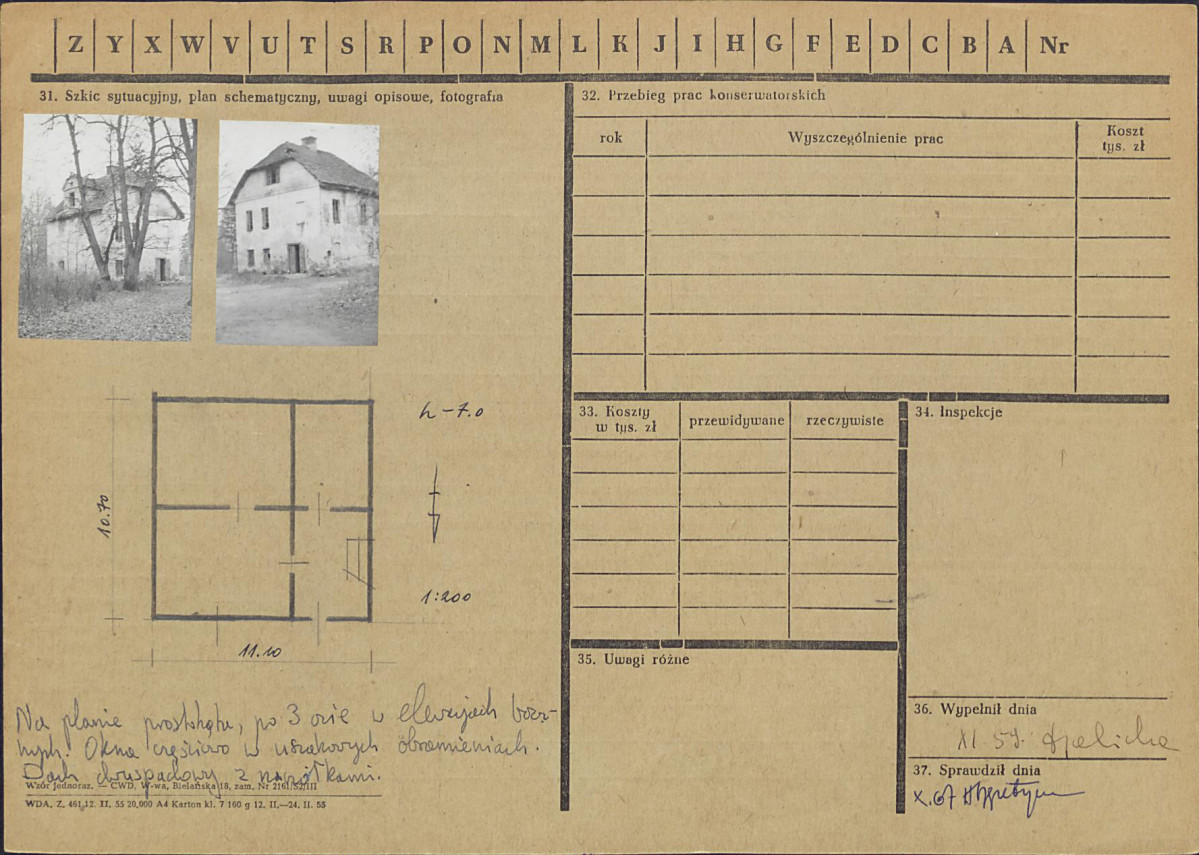 Z Y X W V U T S R P O N M L K J I H G F E D C B A Nr
31. Szkic sytuacyjny, plan schematyczny, uwagi opisowe, fotografia
h – 7.0
10.70
1:200
11.10
Na planie prostokąta, po 3 osie w elewacjach bocz-
nych. Okna częściowo w uszakowych obramieniach.
Dach dwuspadowy z naczółkami.
Wzór jednoraz. — CWD, W-wa, Bielańska 18, zam. Nr 2161/52/III
WDA. Z. 461 12. II. 55 20,000 A4 Karton kl. 7 160 g 12. II.—24. II. 55
32. Przebieg prac konserwatorskich
rok
Wyszczególnienie prac
Koszt
tys. zł
33. Koszty
w tys. zł
przewidywane
rzeczywiste
34. Inspekcje
35. Uwagi różne
36. Wypełnił dnia
XI 59.
37. Sprawdził dnia
X.67